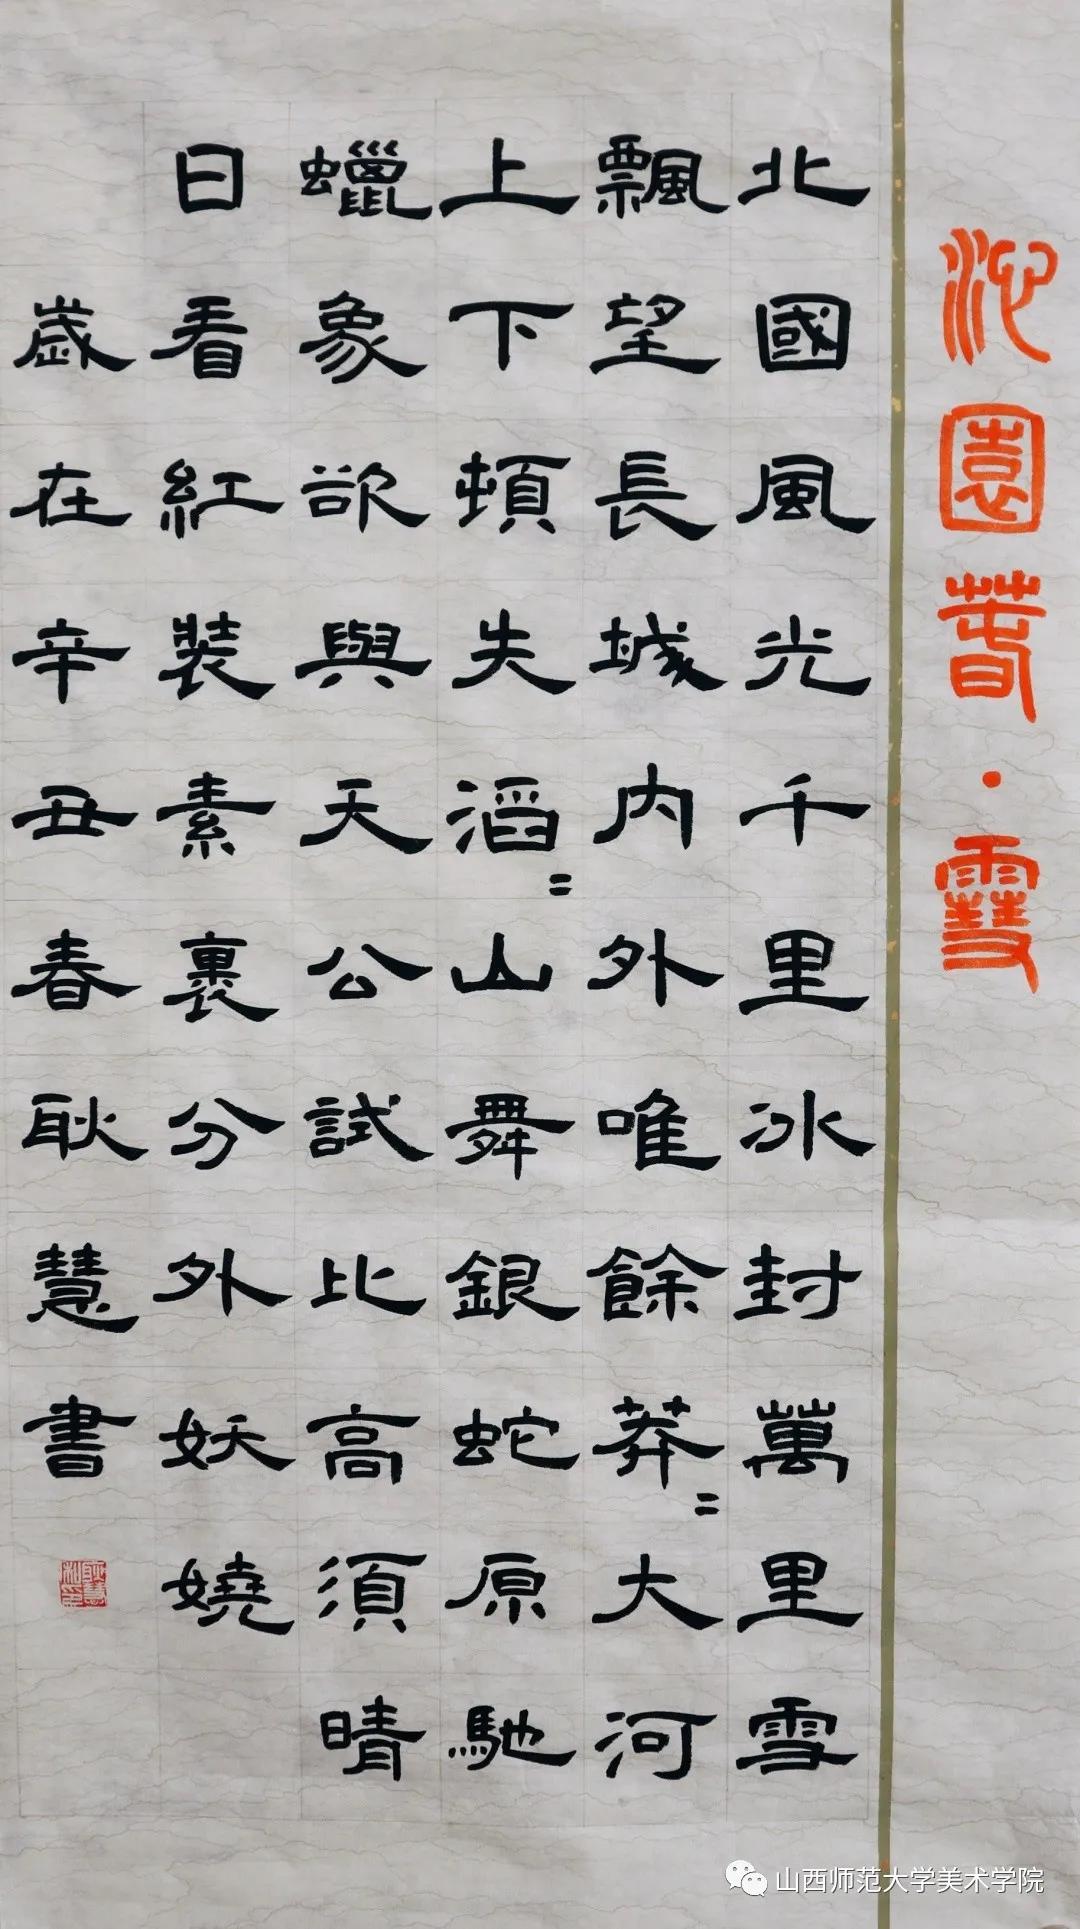 沁園春·雪
北國風光千里冰封萬里雪
飄望長城内外唯餘莽〓大河
上下頓失滔〓山舞銀蛇原馳
蠟象欲與天公試比高須晴
日看紅裝素裹分外妖嬈
歲在辛丑春耿慧書
山西师范大学美术学院